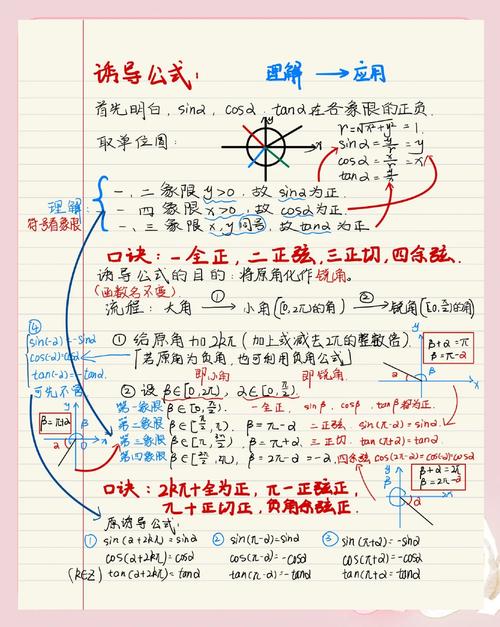 诱导公式:
理解 → 应用
首先明白, sinα, cosα, tanα在各象限的正负.
取单位圆:
y
x
r=√x²+y²=1.
sinα=y/r=y
cosα=x/r=x
tanα=y/x
理解:
符号看象限
一、二象限 y>0, 故 sinα为正.
一、四象限 x>0, 故 cosα为正.
一、三象限 x,y同号, 故 tanα为正
口诀: 一全正, 二正弦, 三正切, 四余弦.
诱导公式的目的: 将原角化作锐角.
(函数名不变)
流程: 大角 ①→ 小角([0,2π)的角) ②→ 锐角([0,π/2)的角)
④
sin(-α)=-sinα
cos(-α)=cosα
tan(-α)=-tanα
可先不管
① 给原角+2kπ (加上或减去2π的整数倍)
[若原角为负角, 也可利用负角公式]
β+α=π
β=π-α
即小角
即锐角
② 设 β∈[0,2π), α∈[0,π/2).
第一象限 β∈[0,π/2). 一全正, sinβ, cosβ, tanβ都为正.
第二象限 β∈[π/2,π), β=π-α 二正弦, sin(π-α)=sinα.
第三象限 β∈[π,3π/2), β=π+α, 三正切, tan(π+α)=tanα.
第四象限 β∈[3π/2,2π), β=2π-α=-α. 四余弦, cos(2π-α)=cos(-α)=cosα
β=π+α
β+α=2π
β=2π-α
口诀: 2kπ+全为正, π-正弦正,
π+正切正, 负角余弦正.
原诱导公式:
① sin(α+2kπ)=sinα ② sin(π-α)=sinα ③ sin(π+α)=-sinα
cos(α+2kπ)=cosα cos(π-α)=-cosα cos(π+α)=-cosα
(k∈Z) tan(α+2kπ)=tanα tan(π-α)=-tanα tan(π+α)=tanα